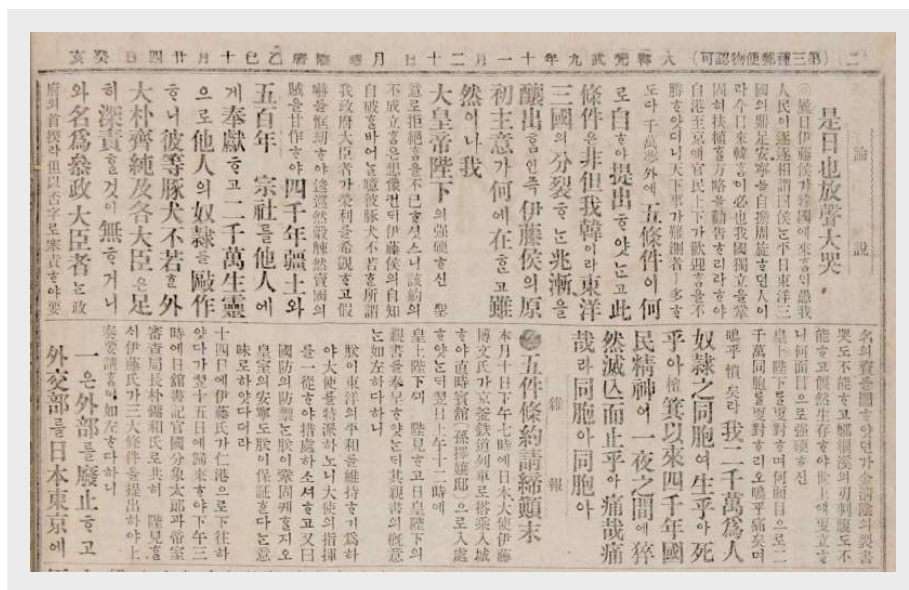 二 (第三種郵便物認可) 大韓光武九年十一月二十日 月曜 陰曆乙巳十月廿四日 癸亥
論說
是日也放聲大哭
◎曩日伊藤侯가韓國에來ᄒᆞᆷᄋᆡ愚我
人民이逐逐相謂曰侯ᄂᆞᆫ平日東洋三
國의鼎足安寧을自擔周旋ᄒᆞ던人이
라今日來韓ᄒᆞᆷ이必也我國獨立을鞏
固히扶植ᄒᆞᆯ方略을勸告ᄒᆞ리라ᄒᆞ야
自港至京에官民上下가歡迎ᄒᆞᆷ을不
勝ᄒᆞ얏더니天下事가難測者ㅣ多ᄒᆞ
도다千萬夢外에五條件이何
로自ᄒᆞ야提出ᄒᆞ얏ᄂᆞᆫ고此
條件은非但我韓이라東洋
三國의分裂ᄒᆞᄂᆞᆫ兆漸을
釀出ᄒᆞᆷ인즉伊藤侯의原
初主意가何에在ᄒᆞᆫ고雖
然이나我
大皇帝陛下의强硬ᄒᆞ신 聖
意로拒絶ᄒᆞᆷ을不已ᄒᆞ셧스니該約의
不成立ᄒᆞᆷ은想像컨ᄃᆡ伊藤侯의自知
自破ᄒᆞᆯ바어ᄂᆞᆯ噫彼豚犬不若ᄒᆞᆫ所謂
我政府大臣者가榮利를希覬ᄒᆞ고假
嚇를恇劫ᄒᆞ야逡巡然觳觫然賣國의
賊을甘作ᄒᆞ야四千年疆土와
五百年 宗社를他人에
게奉獻ᄒᆞ고二千萬生靈
으로他人의奴隷를敺作
ᄒᆞ니彼等豚犬不若ᄒᆞᆫ外
大朴齊純及各大臣은足
히深責ᄒᆞᆯ것이無ᄒᆞ거니
와名爲叅政大臣者ᄂᆞᆫ政
府의首揆라但以否字로塞責ᄒᆞ야要
名의資를圖ᄒᆞ얏던가金淸陰의裂書
哭도不能ᄒᆞ고鄭桐溪의刃剚腹도不
能ᄒᆞ고偃然生存ᄒᆞ야世上에更立ᄒᆞ
니何面目으로强硬ᄒᆞ신
皇上陛下를更對ᄒᆞ며何面目으로二
千萬同胞를更對ᄒᆞ리오嗚乎痛矣며
嗚乎憤矣라我二千萬爲人
奴隷之同胞여生乎아死
乎아檀箕以來四千年國
民精神이一夜之間에猝
然滅亾而止乎아痛哉痛
哉라同胞아同胞아
雜報
五件條約請締顚末
本月十日下午七時에日本大使伊藤
博文氏가京釜鐵道列車로搭乘入城
ᄒᆞ야直時賓館(孫擇孃邸)으로入處
ᄒᆞ얏ᄂᆞᆫᄃᆡ翌日上午十二時에
皇上陛下ᄭᅴ 陛見ᄒᆞ고日皇陛下의
親書를奉呈ᄒᆞ얏ᄂᆞᆫᄃᆡ其親書의槪意
는如左하다하니
朕이東洋의平和를維持ᄒᆞ기爲하
야大使를特派하노니大使의指揮
를一從ᄒᆞ야措處하소셔ᄒᆞ고又曰
國防의防禦ᄂᆞᆫ朕이鞏固케ᄒᆞᆯ지오
皇室의安寧도朕이保証ᄒᆞᆫ다ᄂᆞᆫ意
味로하얏다더라
十四日에伊藤氏가仁港으로下往하
얏다가翌十五日에歸來ᄒᆞ야下午三
時에日舘書記官國分象太郎과帝室
審査局長朴鏞和氏로共히 陛見ᄒᆞᆯ
시伊藤氏가三大條件을提出하야上
奏要請ᄒᆞᆷ이如左ᄒᆞ다하니
一은外部를廢止ᄒᆞ고
外交部를日本東京에